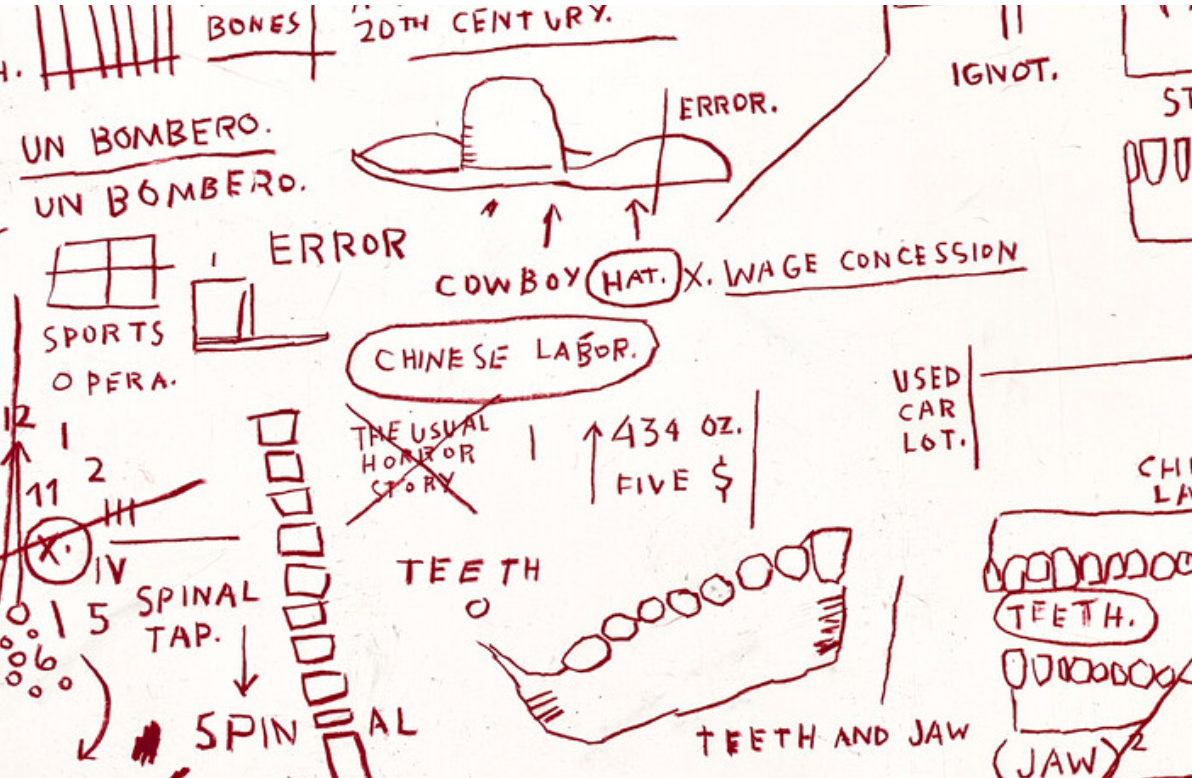 BONES
20TH CENTURY.
H.
IGNOT.
ERROR.
UN BOMBERO.
UN BOMBERO.
ERROR
COWBOY HAT. X. WAGE CONCESSION
SPORTS
OPERA.
CHINESE LABOR.
USED
CAR
LOT.
THE USUAL
HORROR
STORY
1
↑434 OZ.
FIVE $
12
1
2
11
III
X.
IV
5
6
SPINAL
TAP.
SPINAL
TEETH
TEETH AND JAW
TEETH.
(JAW)²